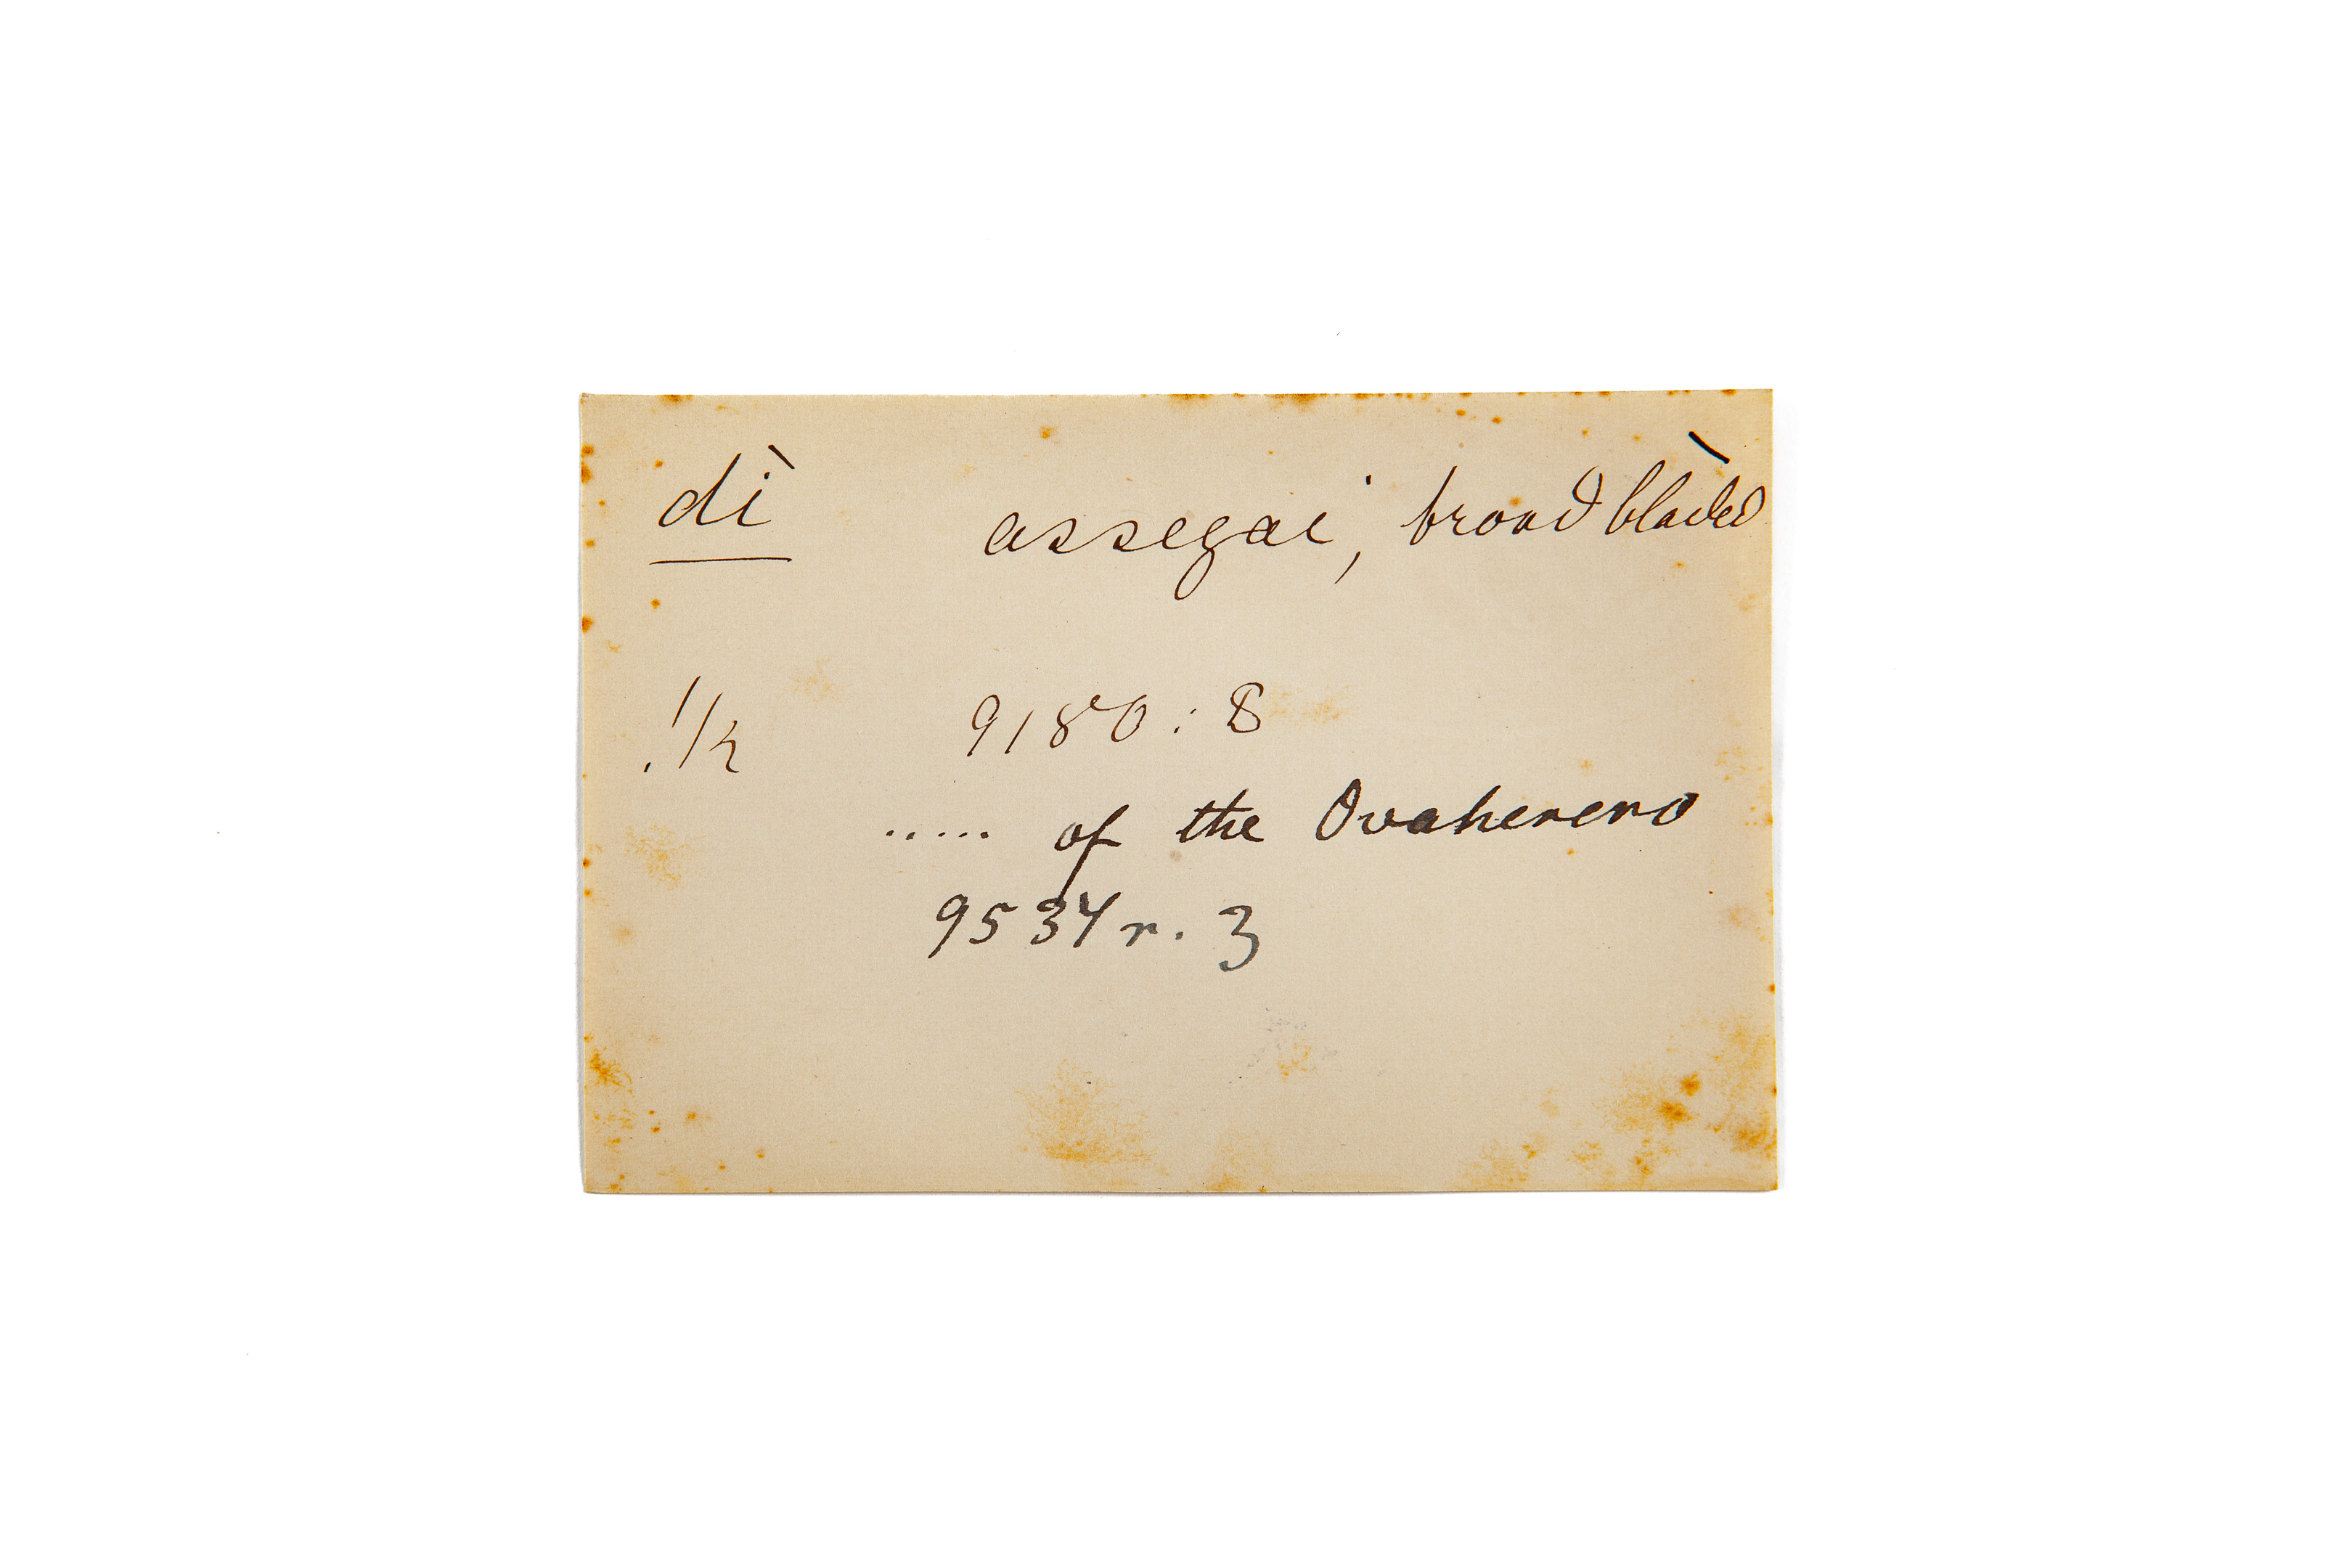 dì assegai, broad bladed
1/2 9180:B
..... of the Ovaherero
9534 r. 3